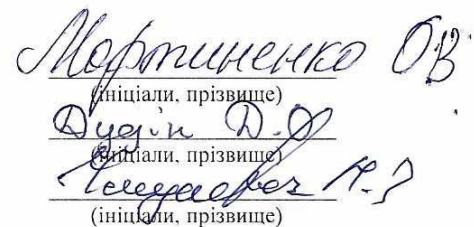 Мартиненко О.В
(ініціали, прізвище)
Дудін Д.О
(ініціали, прізвище)
(ініціали, прізвище)